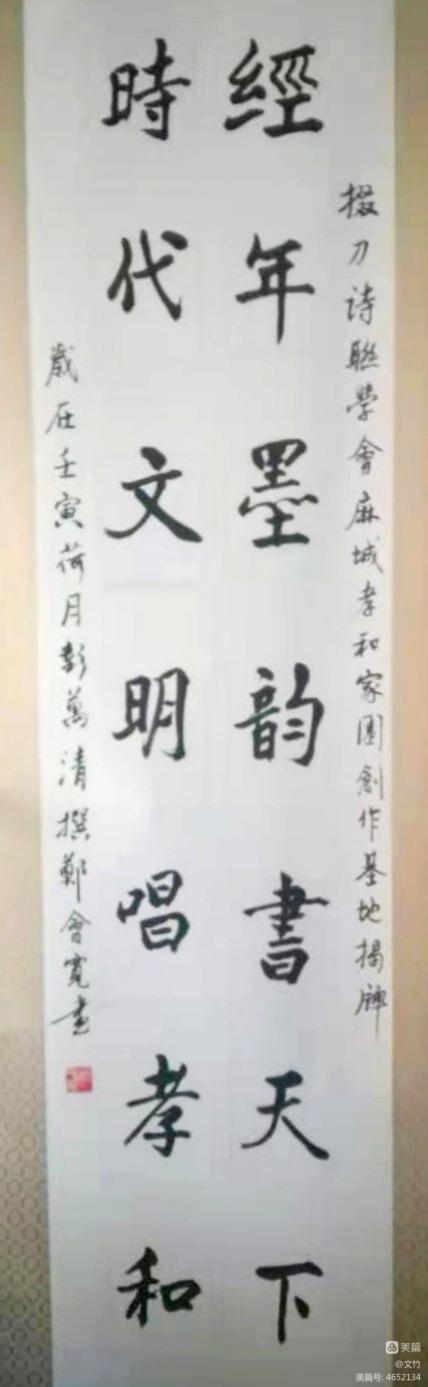 掇刀诗聯學會麻城孝和家園創作基地揭牌
經年墨韵書天下
時代文明唱孝和
歲在壬寅荷月彭萬清撰鄭會寬書
美篇
@文竹
美篇号: 4652134